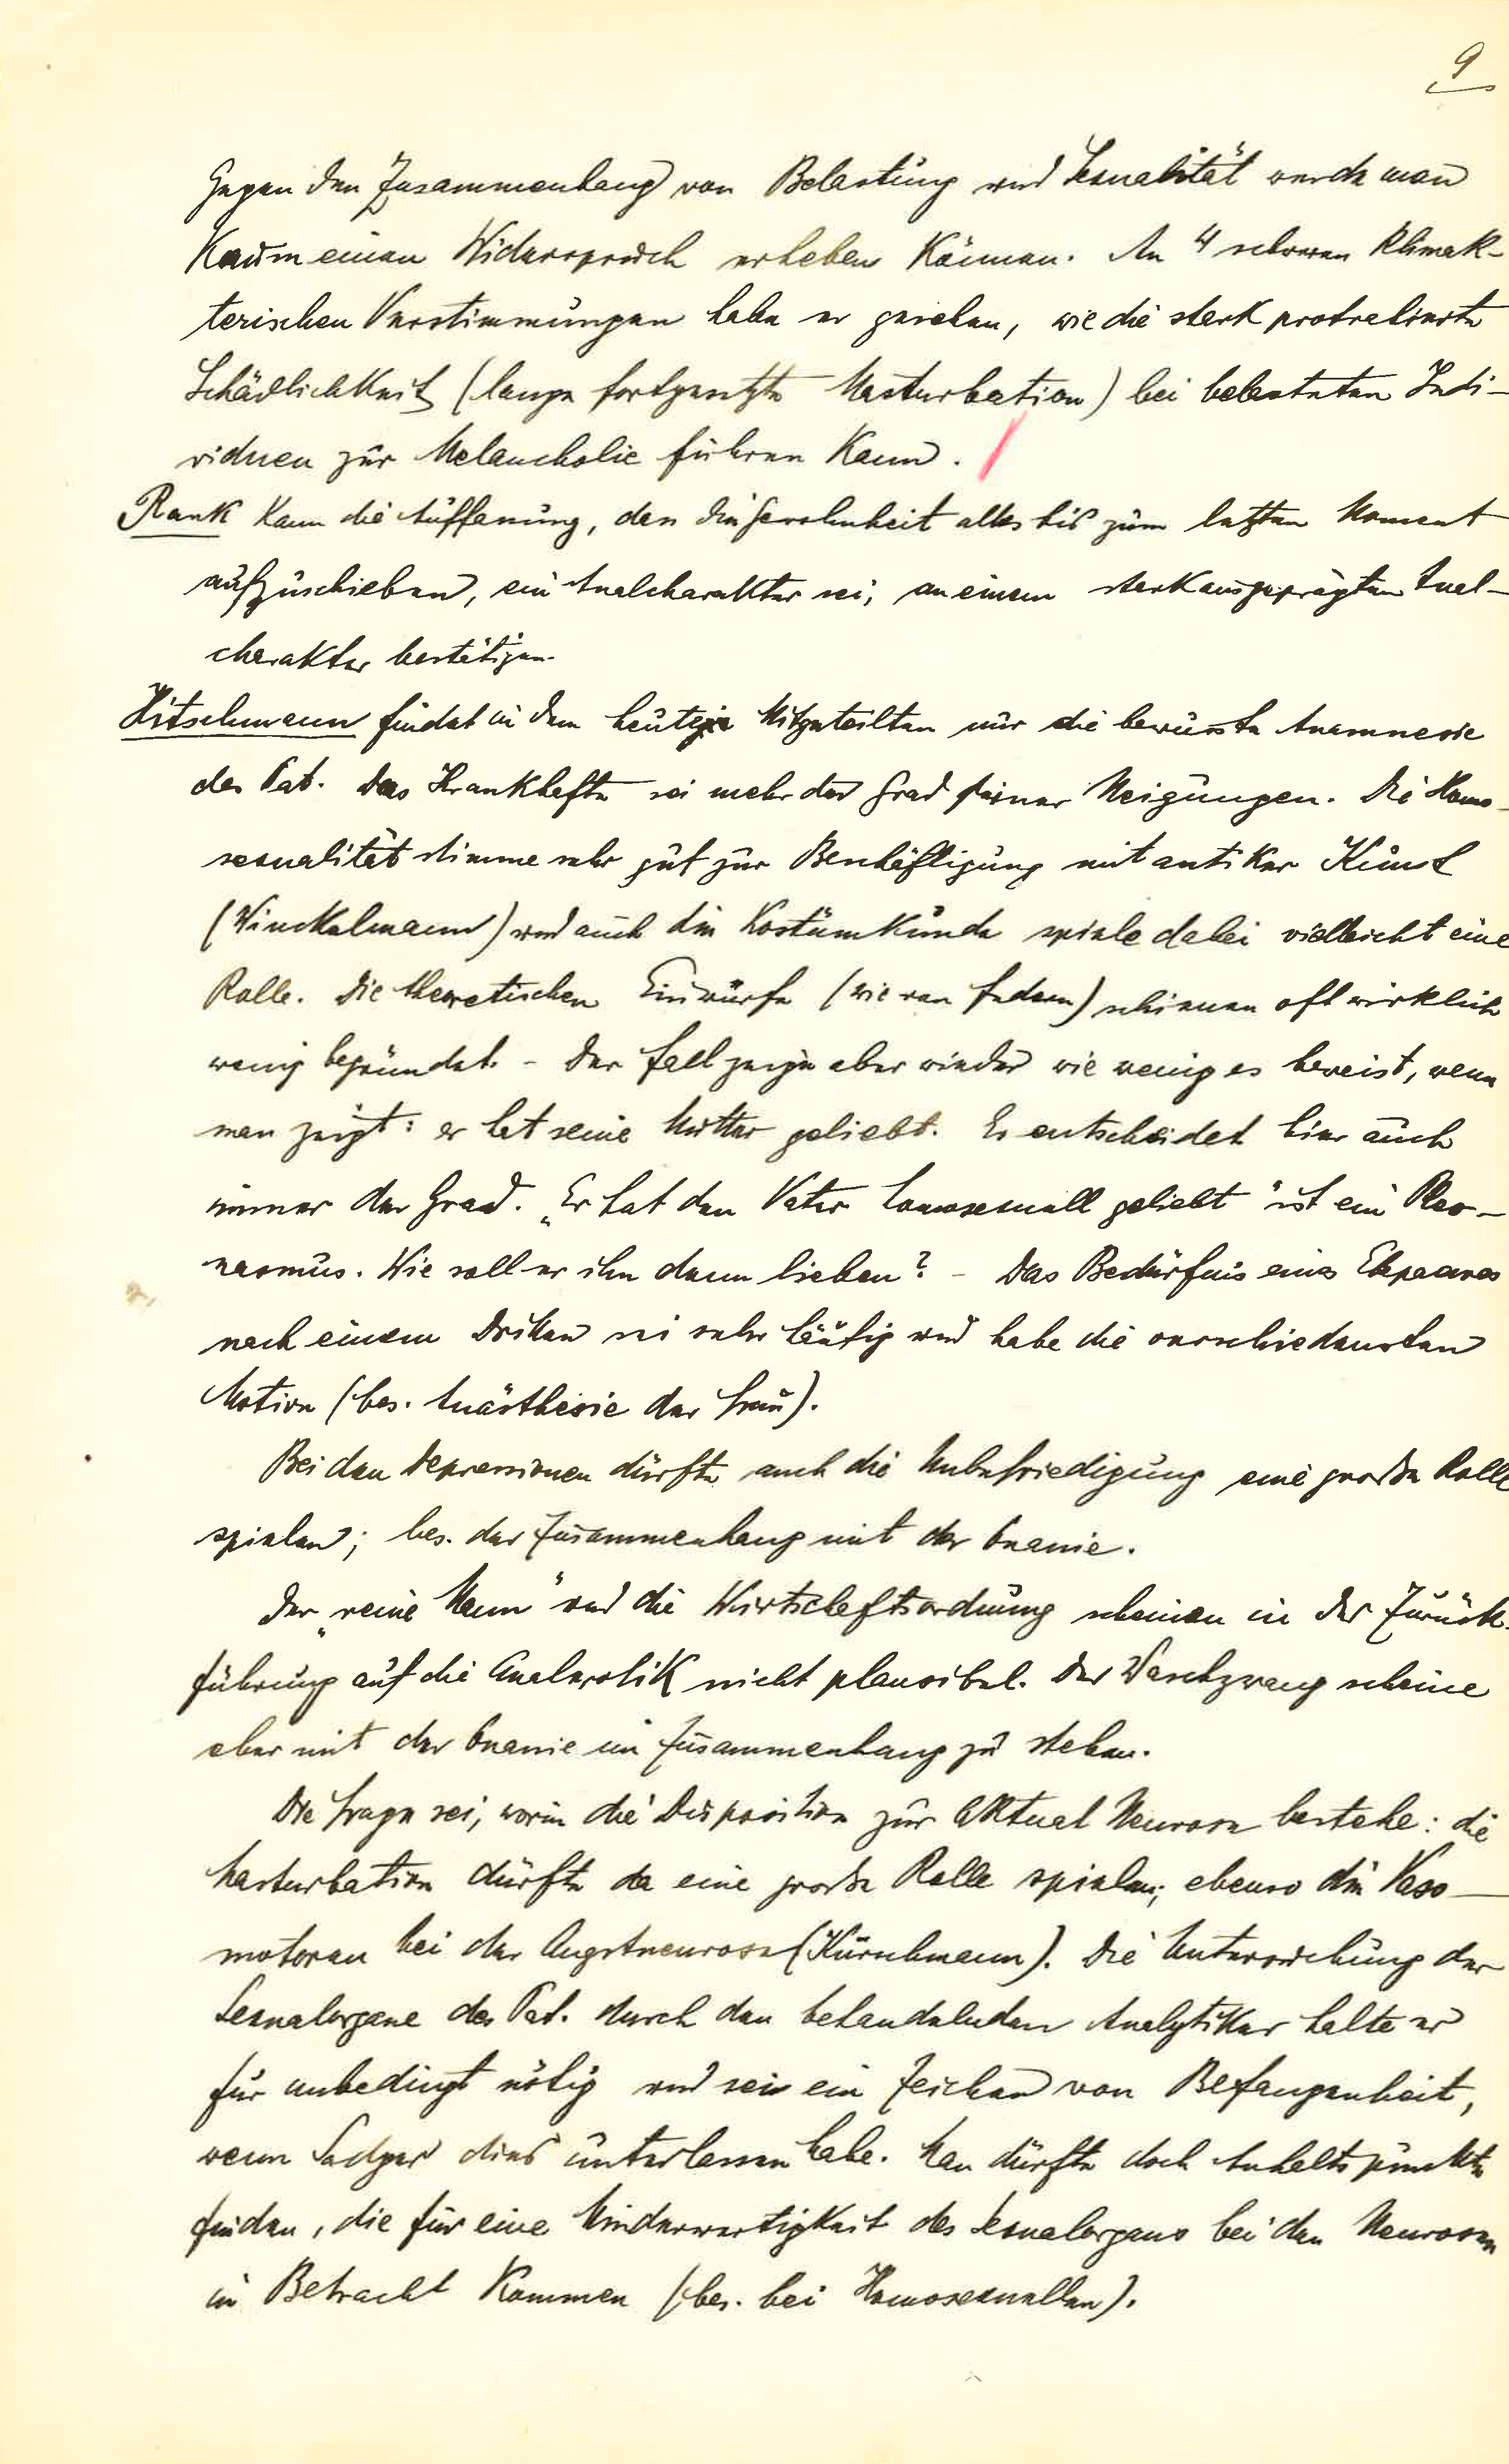 9
Gegen den Zusammenhang von Belastung und Sexualität werde man
kaum einen Widerspruch erheben können. An 4 schweren klimak-
terischen Verstimmungen habe er gesehen, wie die stark protrahierte
Schädlichkeit (lange fortgesetzte Masturbation) bei belasteten Indi-
viduen zur Melancholie führen kann.
Rank kann die Auffassung, dass die Gewohnheit alles bis zum letzten Moment
aufzuschieben, ein Analcharakter sei, an einem stark ausgeprägten Anal-
charakter bestätigen.
Hitschmann findet in dem heute Mitgeteilten nur die bewusste Anamnesie
des Pat. Das Krankhafte sei mehr der Grad seiner Neigungen. Die Homo-
sexualität stimme sehr gut zur Beschäftigung mit antiker Kunst
(Winckelmann) und auch die Kostümkunde spiele dabei vielleicht eine
Rolle. Die theoretischen Einwürfe (wie von Federn) schienen oft wirklich
wenig begründet. - Der Fall zeige aber wieder wie wenig es beweist, wenn
man zeigt: er hat seine Mutter geliebt. Es entscheidet hier auch
immer der Grad. „Er hat den Vater homosexuell geliebt" ist ein Pleo-
nasmus. Wie soll er ihn denn lieben? - Das Bedürfnis eines Ehepaares
nach einem Dritten sei sehr häufig und habe die verschiedensten
Motive (bes. Anästhesie der Frau).
Bei den Depressionen dürfte auch die Unbefriedigung eine große Rolle
spielen; bes. der Zusammenhang mit der Onanie.
Der „reine Mann" und die Wirtschaftsordnung scheinen in der Zurück-
führung auf die Analerotik nicht plausibel. Der Waschzwang scheine
eher mit der Onanie im Zusammenhang zu stehen.
Die Frage sei, worin die Disposition zur Aktual Neurose bestehe: die
Masturbation dürfte da eine große Rolle spielen; ebenso die Vaso-
motoren bei der Angstneurose (Hürschmann). Die Untersuchung der
Sexualorgane des Pat. durch den behandelnden Analytiker halte er
für unbedingt nötig und sei ein Zeichen von Befangenheit,
wenn Sadger dies unterlassen habe. Man dürfte doch Anhaltspunkte
finden, die für eine Minderwertigkeit des Sexualorgans bei den Neurosen
in Betracht kommen (bes. bei Homosexuellen).